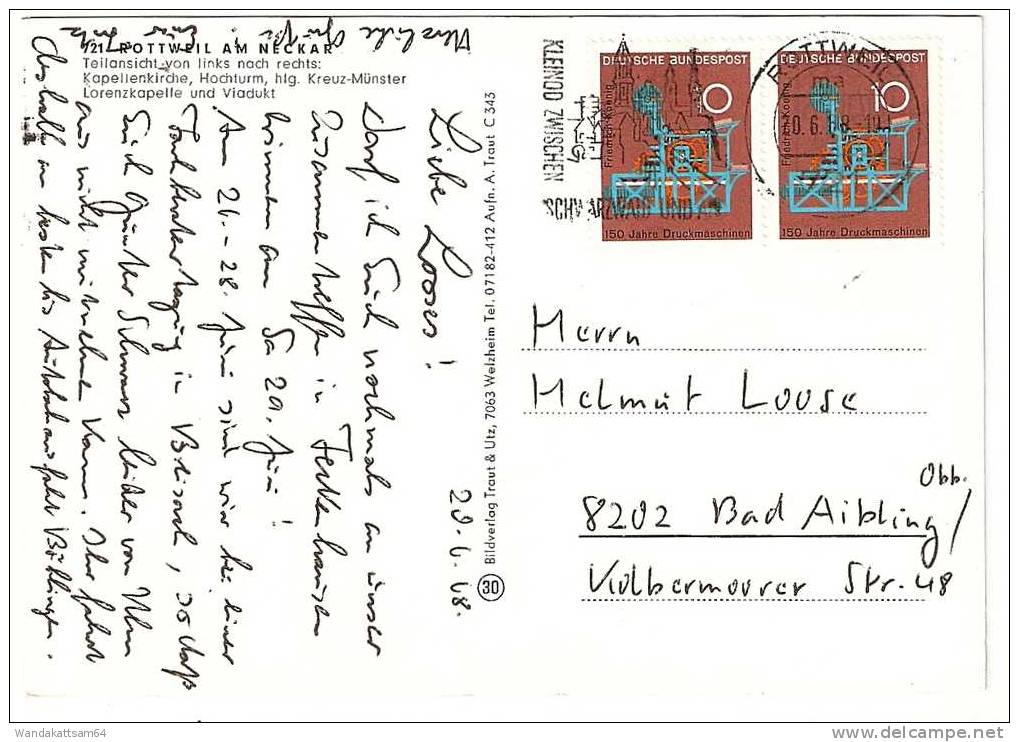 721 ROTTWEIL AM NECKAR
Teilansicht von links nach rechts:
Kapellenkirche, Hochturm, hlg. Kreuz-Münster
Lorenzkapelle und Viadukt
20.6.68.
Liebe Looses!
Darf ich Euch nochmals an unser
Zusammentreffen in Feckenhausen
erinnern am Sa 29. Juni!
Am 26.-28. Juni sind wir bei einer
Fachberatertagung in Beisach, so daß
Euch Günter Schwarz leider von Ulm
aus nicht mitnehmen kann. Ihr fahrt
deshalb am besten bis Autobahnausfahrt Böblingen.
Herzliche Grüße
Bildverlag Traut & Utz, 7063 Welzheim Tel. 07182-412 Aufn. A. Traut C 343
30
KLEINOD ZWISCHEN
SCHWARZWALD UND
ROTTWEIL
20.6.68-19
DEUTSCHE BUNDESPOST
10
Friedrich Koenig
150 Jahre Druckmaschinen
DEUTSCHE BUNDESPOST
10
Friedrich Koenig
150 Jahre Druckmaschinen
Herrn
Helmut Loose
8202 Bad Aibling/
Obb.
Kolbermoorer Str. 48
Wandakattsam64
delcampe.net